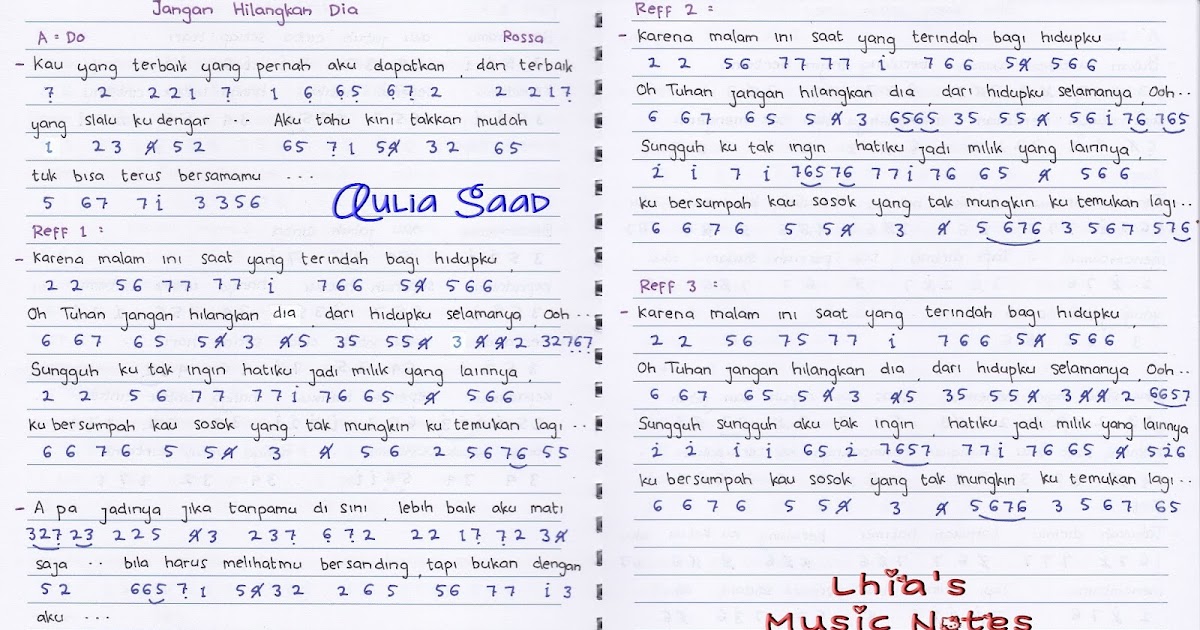 Jangan Hilangkan Dia
A = Do Rossa
- Kau yang terbaik yang pernah aku dapatkan, dan terbaik
7̣ 2 2 2 1 7̣ 1 6̣ 6̣5̣ 6̣ 7̣ 2 2 2 1 7̣
yang slalu ku dengar ... Aku tahu kini takkan mudah
1 2 3 4̸ 5 2 6 5 7̣ 1 5 4̸ 3 2 6 5
tuk bisa terus bersamamu ...
5 6 7 7 i 3 3 5 6
Aulia Saad
Reff 1 :
- Karena malam ini saat yang terindah bagi hidupku,
2 2 5 6 7 7 7 7 i 7 6 6 5 4̸ 5 6 6
Oh Tuhan jangan hilangkan dia, dari hidupku selamanya, Ooh...
6 6 7 6 5 5 4̸ 3 4̸ 5 3 5 5 5 4̸ 3 4̸ 4̸ 2 3 2 7̣ 6̣ 7̣
Sungguh ku tak ingin hatiku jadi milik yang lainnya,
2 2 5 6 7 7 7 7 i 7 6 6 5 4̸ 5 6 6
ku bersumpah kau sosok yang tak mungkin ku temukan lagi ..
6 6 7 6 5 5 4̸ 3 4̸ 5 6 2 5 6 7 6 5 5
- A pa jadinya jika tanpamu di sini, lebih baik aku mati
3 2 7̣ 2 3 2 2 5 4̸ 3 2 3 7̣ 6̣ 7̣ 2 2 2 1 7̣ 7̣ 2 3 4̸
saja .. bila harus melihatmu bersanding, tapi bukan dengan
5 2 6 6 5 7̣ 1 5 4̸ 3 2 2 6 5 5 6 7 7 i 3
aku ...
Reff 2 :
- Karena malam ini saat yang terindah bagi hidupku,
2 2 5 6 7 7 7 7 i 7 6 6 5 4̸ 5 6 6
Oh Tuhan jangan hilangkan dia, dari hidupku selamanya, Ooh..
6 6 7 6 5 5 4̸ 3 6 5 6 5 3 5 5 5 4̸ 5 6 i 7 6 7 6 5
Sungguh ku tak ingin hatiku jadi milik yang lainnya,
2̇ i 7 i 7 6 5 7 6 7 7 i 7 6 6 5 4̸ 5 6 6
ku bersumpah kau sosok yang tak mungkin ku temukan lagi ..
6 6 7 6 5 5 4̸ 3 4̸ 5 6 7 6 3 5 6 7 5 7 6
Reff 3 :
- Karena malam ini saat yang terindah bagi hidupku,
2 2 5 6 7 5 7 7 i 7 6 6 5 4̸ 5 6 6
Oh Tuhan jangan hilangkan dia, dari hidupku selamanya, Ooh..
6 6 7 6 5 5 4̸ 3 4̸ 5 3 5 5 5 4̸ 3 4̸ 4̸ 2 6 6 5 7
Sungguh sungguh aku tak ingin, hatiku jadi milik yang lainnya
2̇ 2̇ i i 6 5 2̇ 7 6 5 7 7 7 i 7 6 6 5 4̸ 5 2 6
ku bersumpah kau sosok yang tak mungkin, ku temukan lagi ..
6 6 7 6 5 5 4̸ 3 4̸ 5 6 7 6 3 5 6 7 6 5
Lhia's
Music Notes